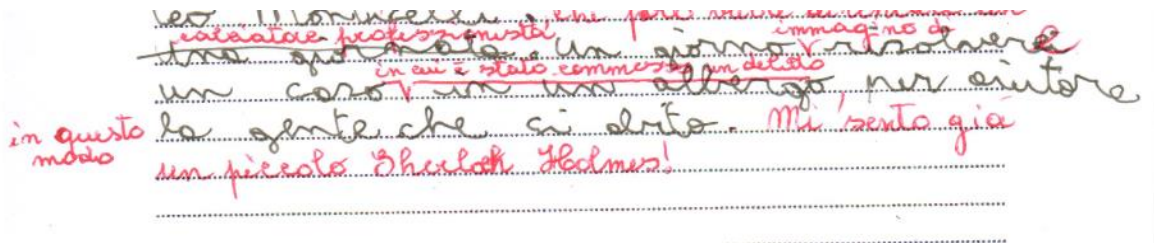 calciatore professionista,
immagino di
una giornata. Un giorno risolvere
in cui è stato commesso un delitto
un caso in un albergo per aiutare
in questo modo
la gente che ci abita. Mi sento già
un piccolo Sherlock Holmes!